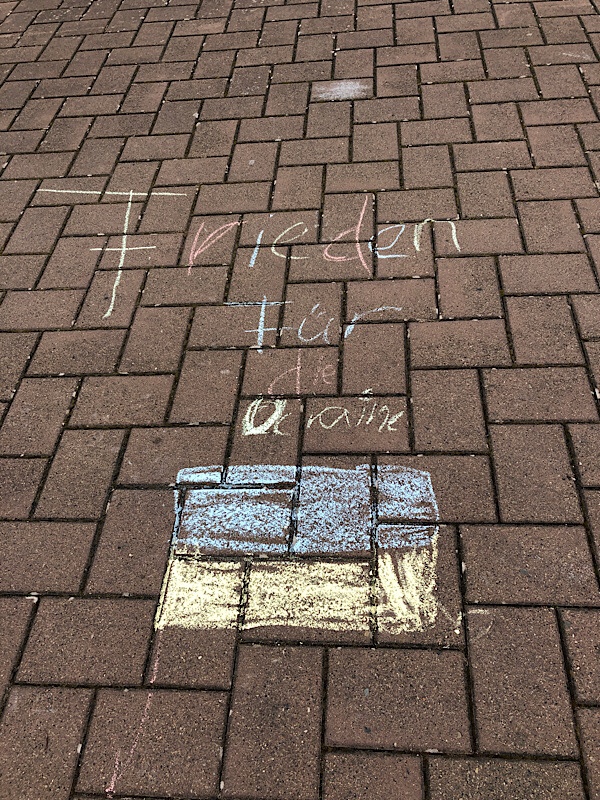 Frieden
für
die
Ukraine